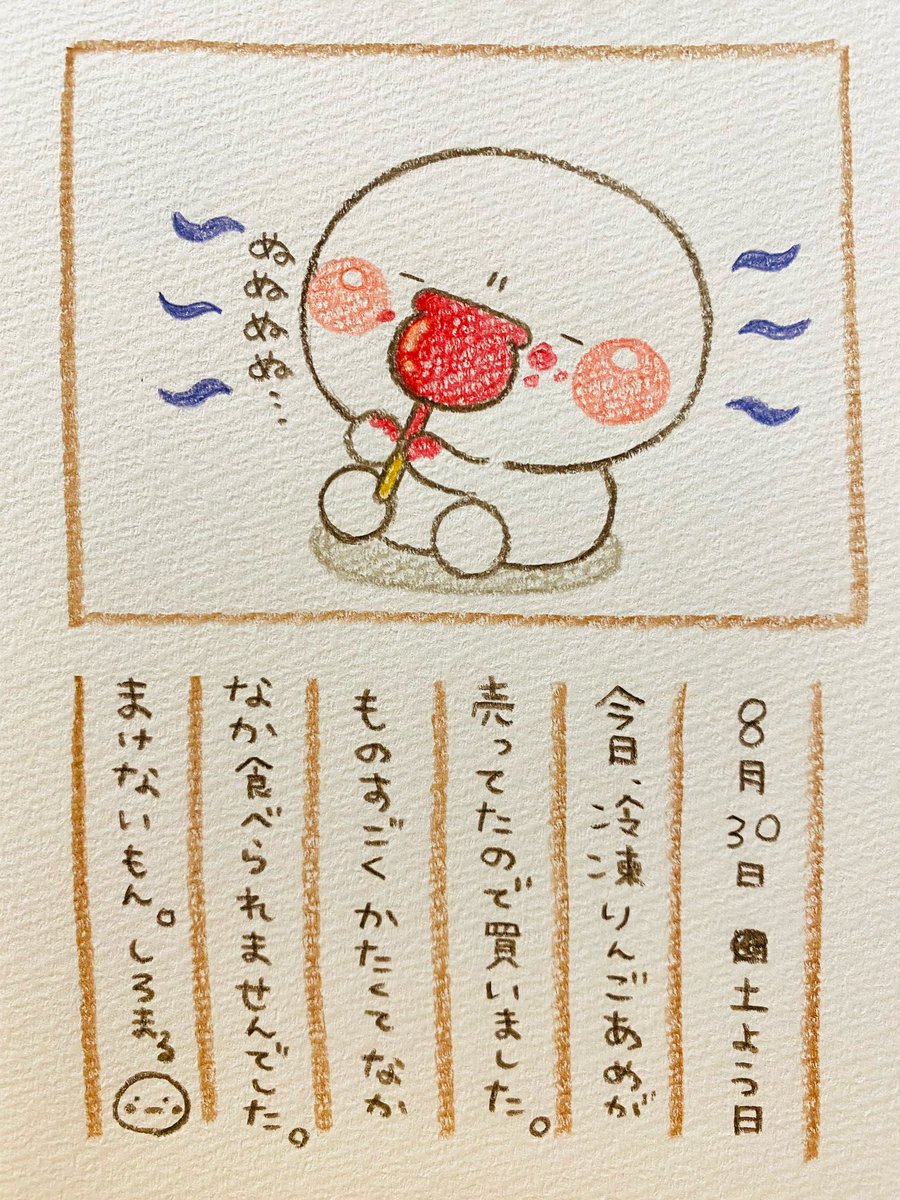 ぬぬぬぬ…
8月30日 土よう日
今日、冷凍りんごあめが
売ってたので買いました。
ものすごくかたくてなか
なか食べられませんでした。
まけないもん。しろまる